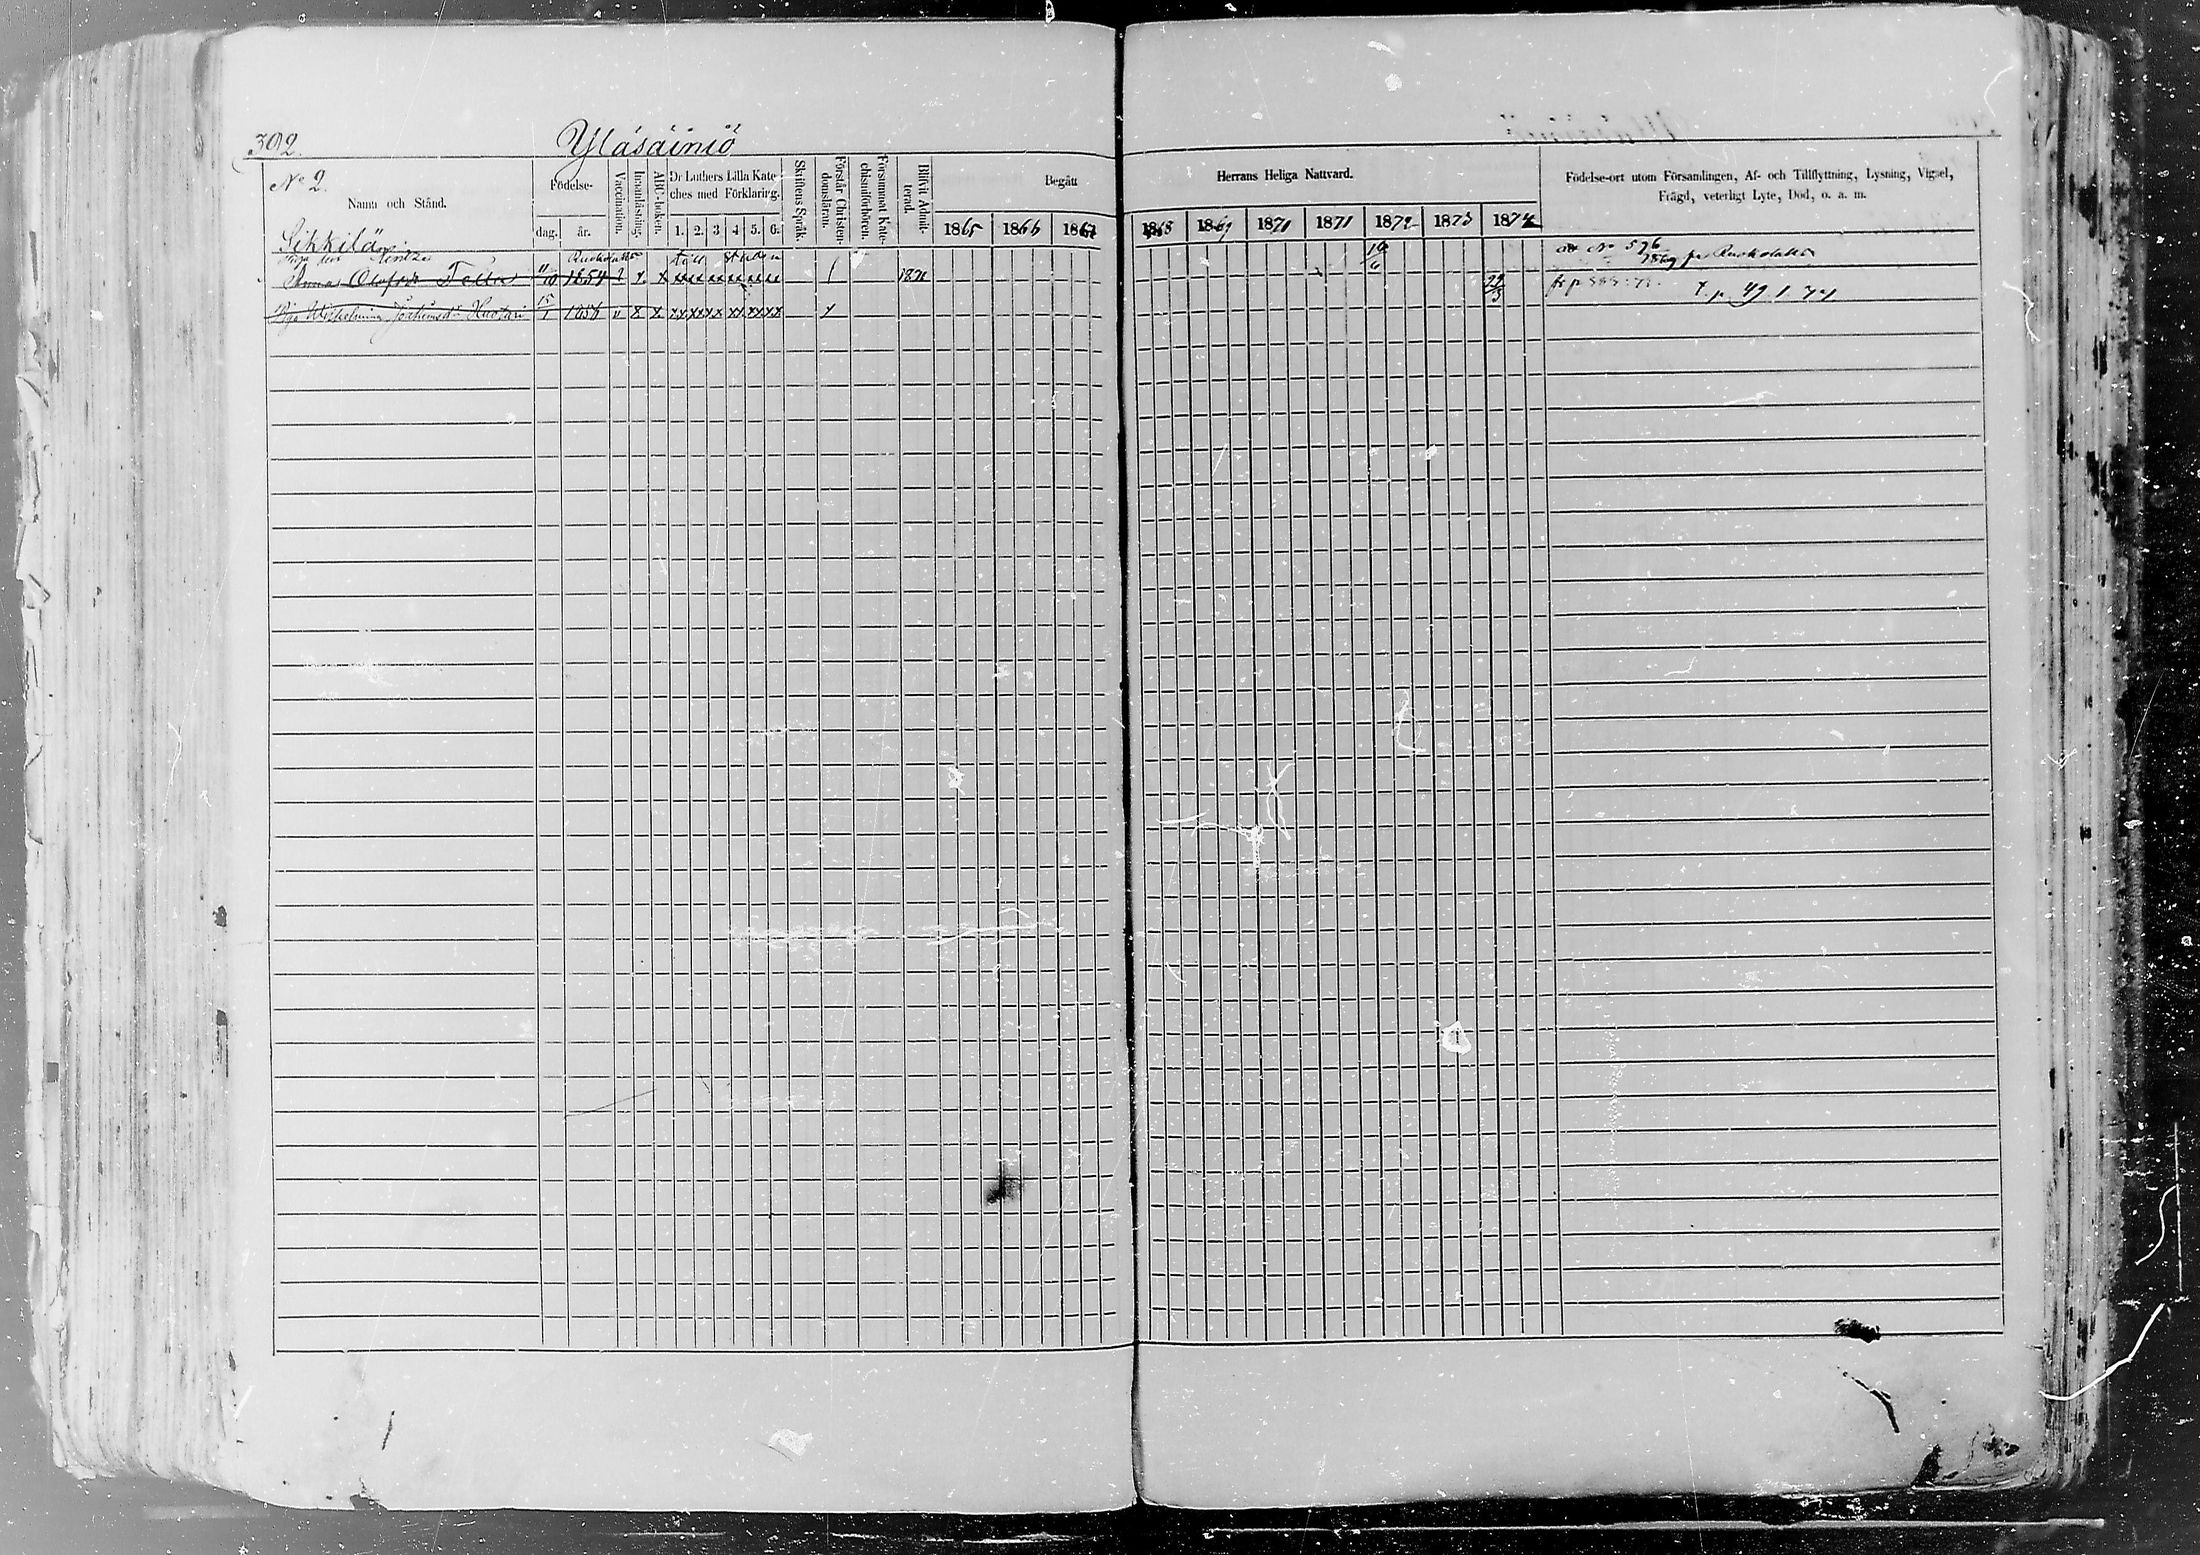 392.
Yläsäiniö
No 2.
Namn och Stånd.
Födelse-
dag.
år.
Vaccination.
Innanläsning.
ABC-boken.
Dr Luthers Lilla Kate
ches med Förklaring.
1. 2. 3 4 5. 6.
Skriftens Språk.
Förstår Christen-
domsläran.
Försummat Kate-
chismiförhören.
Blifvit Admit-
terad.
Begått
1865 1866 1867
Herrans Heliga Nattvard.
1868 1869 1870 1871 1872 1873 1874
Födelse-ort utom Församlingen, Af- och Tillflyttning, Lysning, Vigsel,
Frägd, veterligt Lyte, Död, o. a. m.
Sikkilä
Ruokolahti
No 596
1869 fr Ruokolahti
Anna Olofsdr Tella 11/10 1854
1871
19/6
Pig. Wilhelmina Joakimsdr Huotari 15/1 1856
22/3
t. p. 49 1. 74